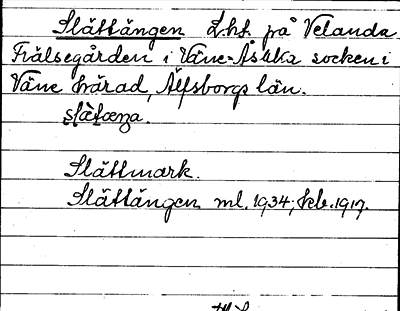 Slättängen L.ht. på Velanda
Frälsegården i Väne-Åsaka socken i
Väne härad, Älfsborgs län.
Slättmark.
Slättängen ml. 1934; kb. 1917.